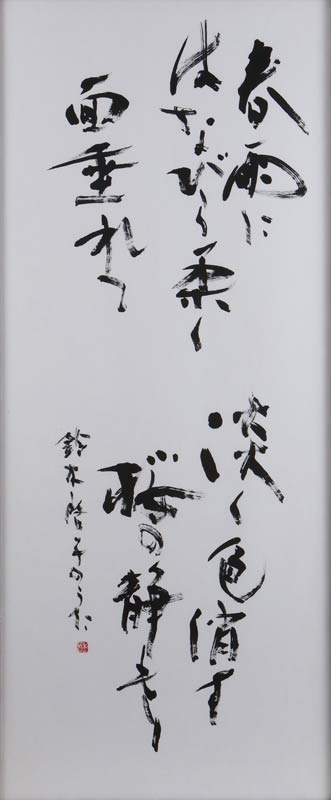 春雨に
はなびら柔く
面垂れて
淡く色消す
桜の静もり
鈴木啓子のうた